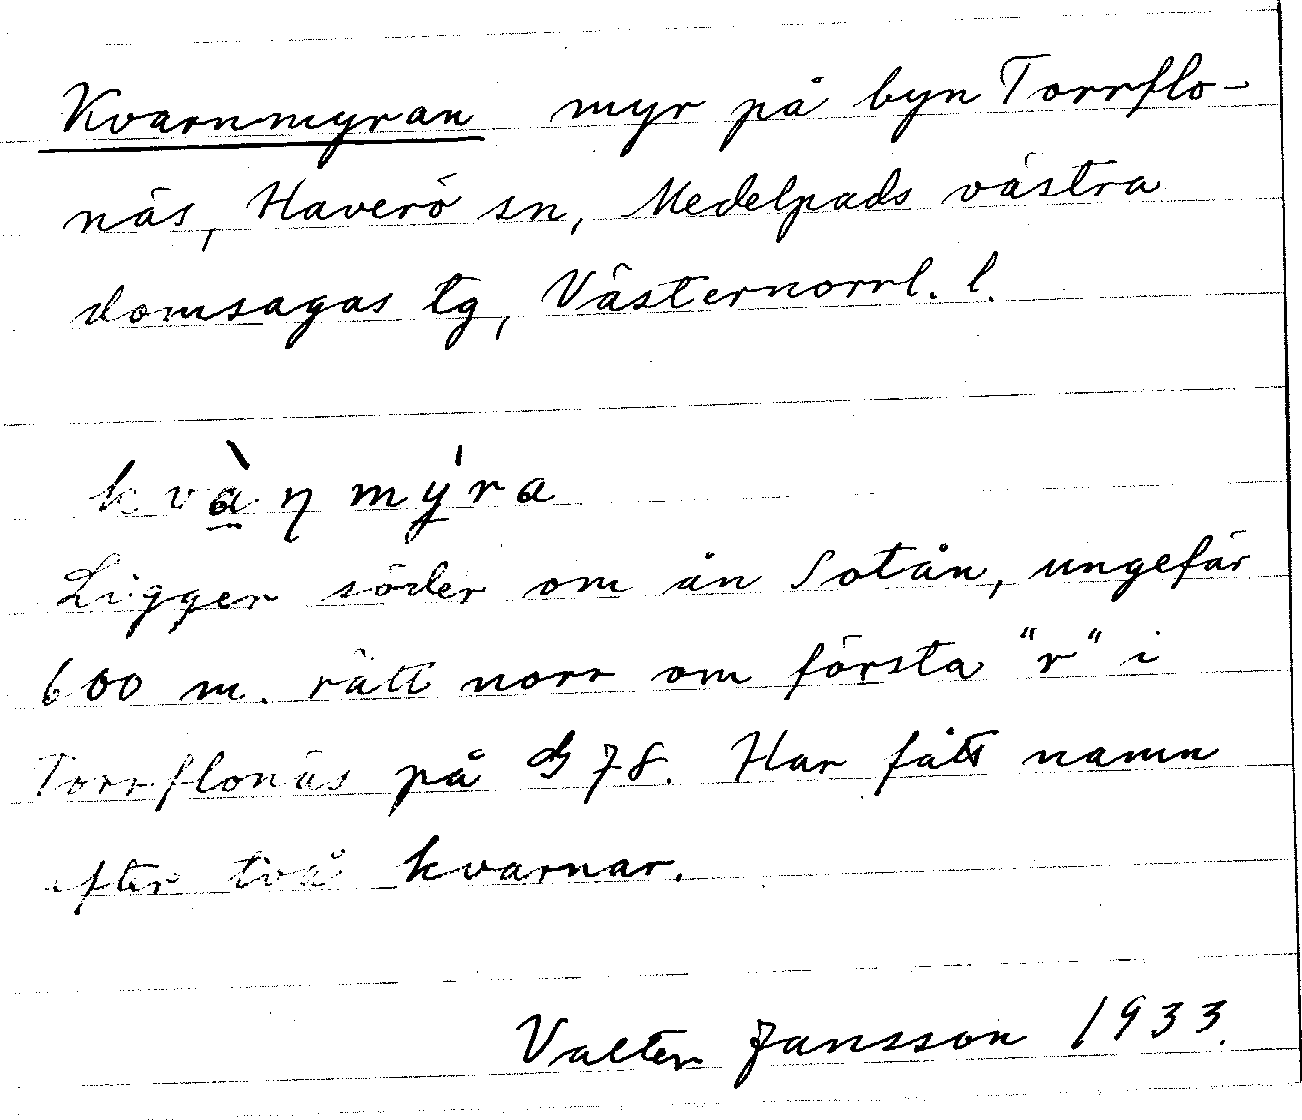 Kvarnmyran myr på byn Torrflo-
näs, Haverö sn, Medelpads västra
domsagas tg, Västernorrl. l.
kvàṇmýra
Ligger söder om ån Sotån, ungefär
600 m. rätt norr om första "r" i
Torrflonäs på 78. Har fått namn
efter två kvarnar.
Valter Jansson 1933.